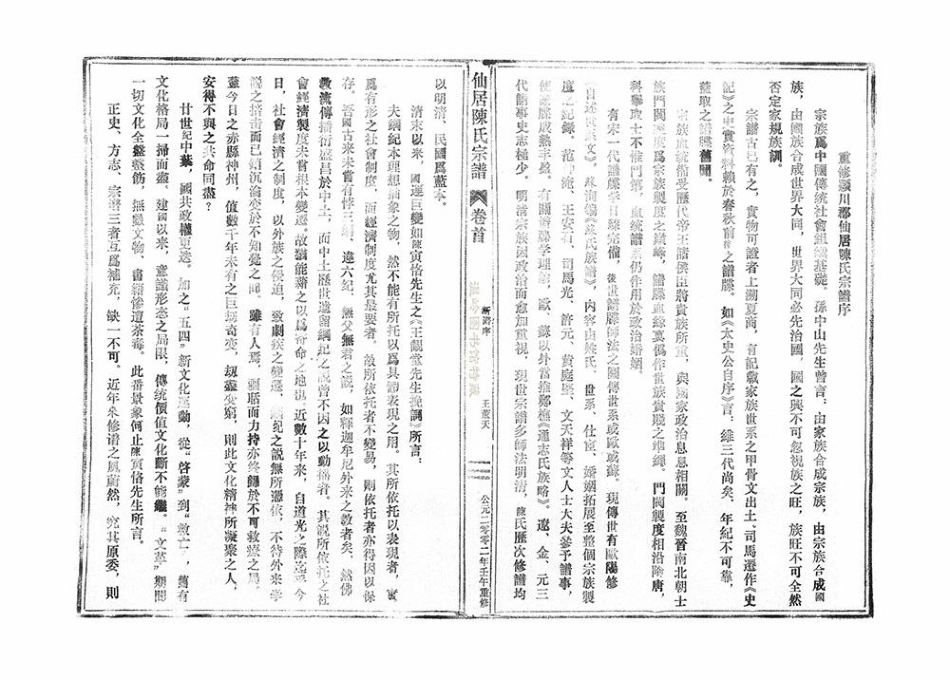 重修潁川郡仙居陳氏宗譜序
宗族爲中國傳統社會組織基礎。孫中山先生曾言：由家族合成宗族，由宗族合成國
族，由國族合成世界大同，世界大同必先治國，國之興不可忽視族之旺，族旺不可全然
否定家規族訓。
宗譜古已有之，實物可證者上溯夏商，有記載家族世系之甲骨文出土。司馬遷作《史
記》之史實資料賴於春秋前後之譜牒。如《太史公自序》言：維三代尚矣，年紀不可靠，
蓋取之譜牒舊聞。
宗族血統備受歷代帝王諸侯臣將貴族所重，與國家政治息息相關。至魏晉南北朝士
族門閥制度爲宗族制度之巔峰，譜牒血緣真僞作世族貴賤之準繩。門閥制度相沿隋唐，
科舉取士不惟門第，血統譜系仍作用於政治婚姻。
有宋一代譜牒學日臻完備，後世譜牒師法之圖傳世系或歐或蘇。現傳世有歐陽修
《自述世表文》，蘇洵編《蘇氏族譜》，内容由姓氏、世系、仕宦、婚姻拓展至整個宗族製
度之紀録，范仲淹、王安石、司馬光、許元、黄庭堅、文天祥等文人士大夫參予譜事，
使譜牒成熟丰盈。有關譜牒學理論，歐、蘇以外當推鄭樵《通志氏族略》。遼、金、元三
代譜事史志極少。明清宗族因政治而愈加重視，現世宗譜多師法明清，陳氏歷次修譜均
仙居陳氏宗譜
卷首
新譜序
王董天
公元二零零二年壬午重修
以明清、民國爲藍本。
清末以來，國運巨變如陳寅恪先生之《王觀堂先生挽詞》所言：
夫綱紀本理想抽象之物，然不能有所托以爲具體表現之用。其所依托以表現者，實
爲有形之社會制度，而經濟制度尤其最要者。故所依托者不變易，則依托者亦得因以保
存。吾國古來未嘗有悖三綱、違六紀、無父無君之説，如釋迦牟尼外來之教者矣。然佛
教流傳播衍盛昌於中土，而中土歷世遺留綱紀之説曾不因之以動摇者。其説所依托之社
會經濟製度未嘗根本變遷。故猶能藉之以爲寄命之地也。近數十年來，自道光之際迄乎今
日，社會經濟之制度，以外族之侵迫，致劇疾之變遷，綱紀之説無所憑依，不待外來學
説之掊擊而已銷沉淪變於不知覺之間。雖有人焉，强聒而力持亦終歸於不可救療之局。
蓋今日之赤縣神州，值數千年未有之巨劫奇變，劫盡變窮，則此文化精神所凝聚之人，
安得不與之共命同盡？
廿世紀中葉，國共政權更迭，加之“五四”新文化運動，從“啓蒙”到“救亡”，舊有
文化格局一掃而盡。建國以來，意識形态之局限，傳統價值文化斷不能繼。“文革”期間
一切文化全盤整飭，無數文物、書籍慘遭荼毒。此番景象何止陳寅恪先生所言。
正史、方志、宗譜三者互爲補充，缺一不可。近年來修谱之風蔚然，究其原委，則